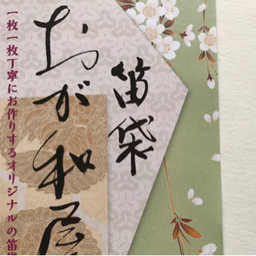 笛袋
おが和屋
一枚一枚丁寧にお作りするオリジナルの笛袋